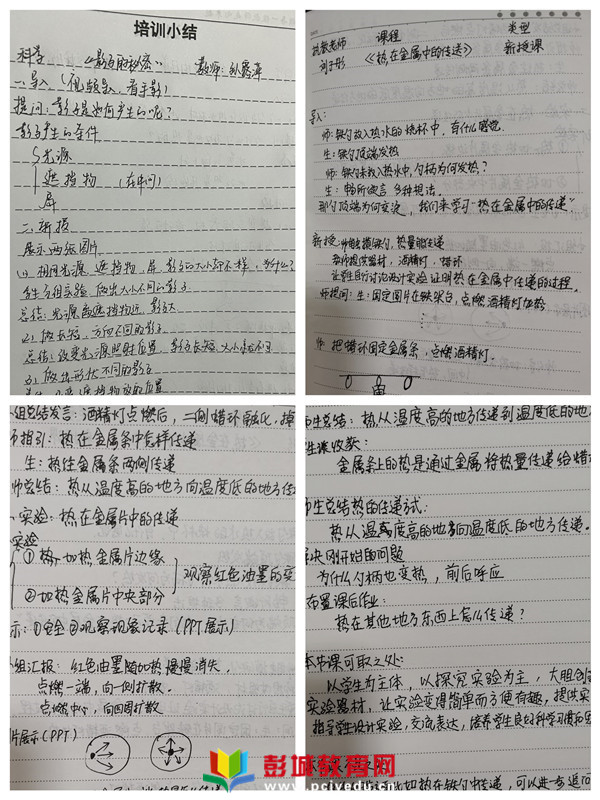 培训小结
科学 《影子的秘密》 教师:孙露萍
一.导入(视频导入,看手影)
提问:影子是如何产生的呢?
影子产生的条件
光源
遮挡物 (在中间)
屏
二.新授
展示两张图片
(1) 相同光源 遮挡物 屏 影子的大小却不一样,为什么?
学生分组实验 做出大小不同的影子
总结:光源离遮挡物近 影子大
(2) 做长短、方向不同的影子
总结:改变光源照射位置,影子长短、大小也不同
(3) 做出形状不同的影子
遮挡物放的位置
教师 课程 类型
刘子彤 《热在金属中的传递》 新授课
导入:
师:铁勺放入热水的烧杯中,有什么感觉
生:铁勺顶端发热
师:铁勺未放入热水中,勺柄为何发热?
生:畅所欲言 多种想法.
那勺顶端为何变烫,我们来学习“热在金属中的传递”.
新授:
热量能传递
教师提供器材,酒精灯、蜡环
让学生自行讨论设计实验证明热在金属中传递的过程.
师提问:生:固定图片在铁架台,点燃酒精灯加热
把蜡环固定金属条,点燃酒精灯.
组总结发言:酒精灯点燃后,二侧蜡环融化,掉
师指引:热在金属条中怎样传递
生:热往金属条两侧传递
师总结:热从温度高的地方向温度低的地方传
实验:热在金属片中的传递
实验
①热加热金属片边缘
②加热金属片中央部分
观察红色油墨的变
示:①安全②观察现象记录(PPT展示)
组汇报:红色油墨随加热慢慢消失.
点燃一端,向一侧扩散.
点燃中心,向四周扩散.
片展示(PPT)
师生总结:热从温度高的地方传递到温度低的地
生谈收获:
金属条上的热是通过金属将热量传递给蜡
师生总结热的传递方式:
热从温度高的地方向温度低的地方传递。
解决刚开始的问题
为什么勺柄也变热,前后呼应
布置课后作业:
热在其他地方东西上怎么传递?
本节课可取之处:
以学生为主体,以探究实验为主,大胆创
实验器材,让实验变得简单而方便有趣,提供实
指导学生设计实验,交流表达,培养学生良好科学习惯和
如热在铁勺中传递,可以进一步追问
彭城教育网
www.pcjyedu.com